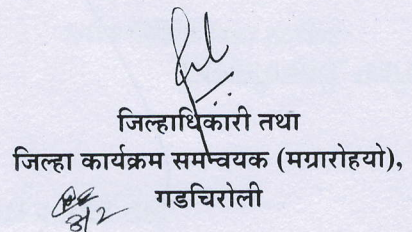 जिल्हाधिकारी तथा
जिल्हा कार्यक्रम समन्वयक (मग्रारोहयो),
गडचिरोली